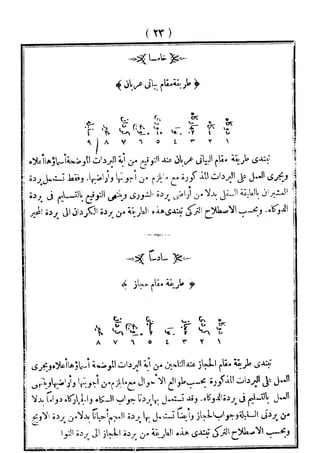 ( ٢٣ )
خامسا
﴿ طريقة مقام بياتي عربان ﴾
١ ٢ ٣ ٤ ٥ ٦ ٧ ٨
تبتدى طريقة مقام البياتي عربان عند التوقيع من أية البردات الموضحة أسماؤها أعلاه
ويجرى العمل على البردات المذكورة مع مايلزم من أجوبتها وأراضيها. وفقط تستعمل بردة
العشيران بالطبقة السفلى بدلا من أراضى بردة الشورى وينتهى التوقيع بالتسليم فى بردة
الدوكاه. وبحسب الاصطلاح التركى تبتدى هذه الطريقة من بردة الكردان الى بردة المحير
سادسا
﴿ طريقة مقام حجاز ﴾
١ ٢ ٣ ٤ ٥ ٦ ٧ ٨
تبتدى طريقة مقام الحجاز عند التلحين من أية البردات الموضحة أسماؤها أعلاه ويجرى
العمل على البردات المذكورة بحسب طوالع الاحوال مع مايلزم من أجوبتها وأراضيها وينتهى
العمل بالتسليم فى بردة الدوكاه. وقد تستعمل بها بردتا جواب السيكاه والجهاركاه دواما بدلا
من بردتى السنبلة وجواب الحجاز وأيضا تستعمل بها بردة العجم أحيانا بدلا من بردة الاويج
وبحسب الاصطلاح التركى تبتدى هذه الطريقة من بردة الحجاز الى بردة النوا